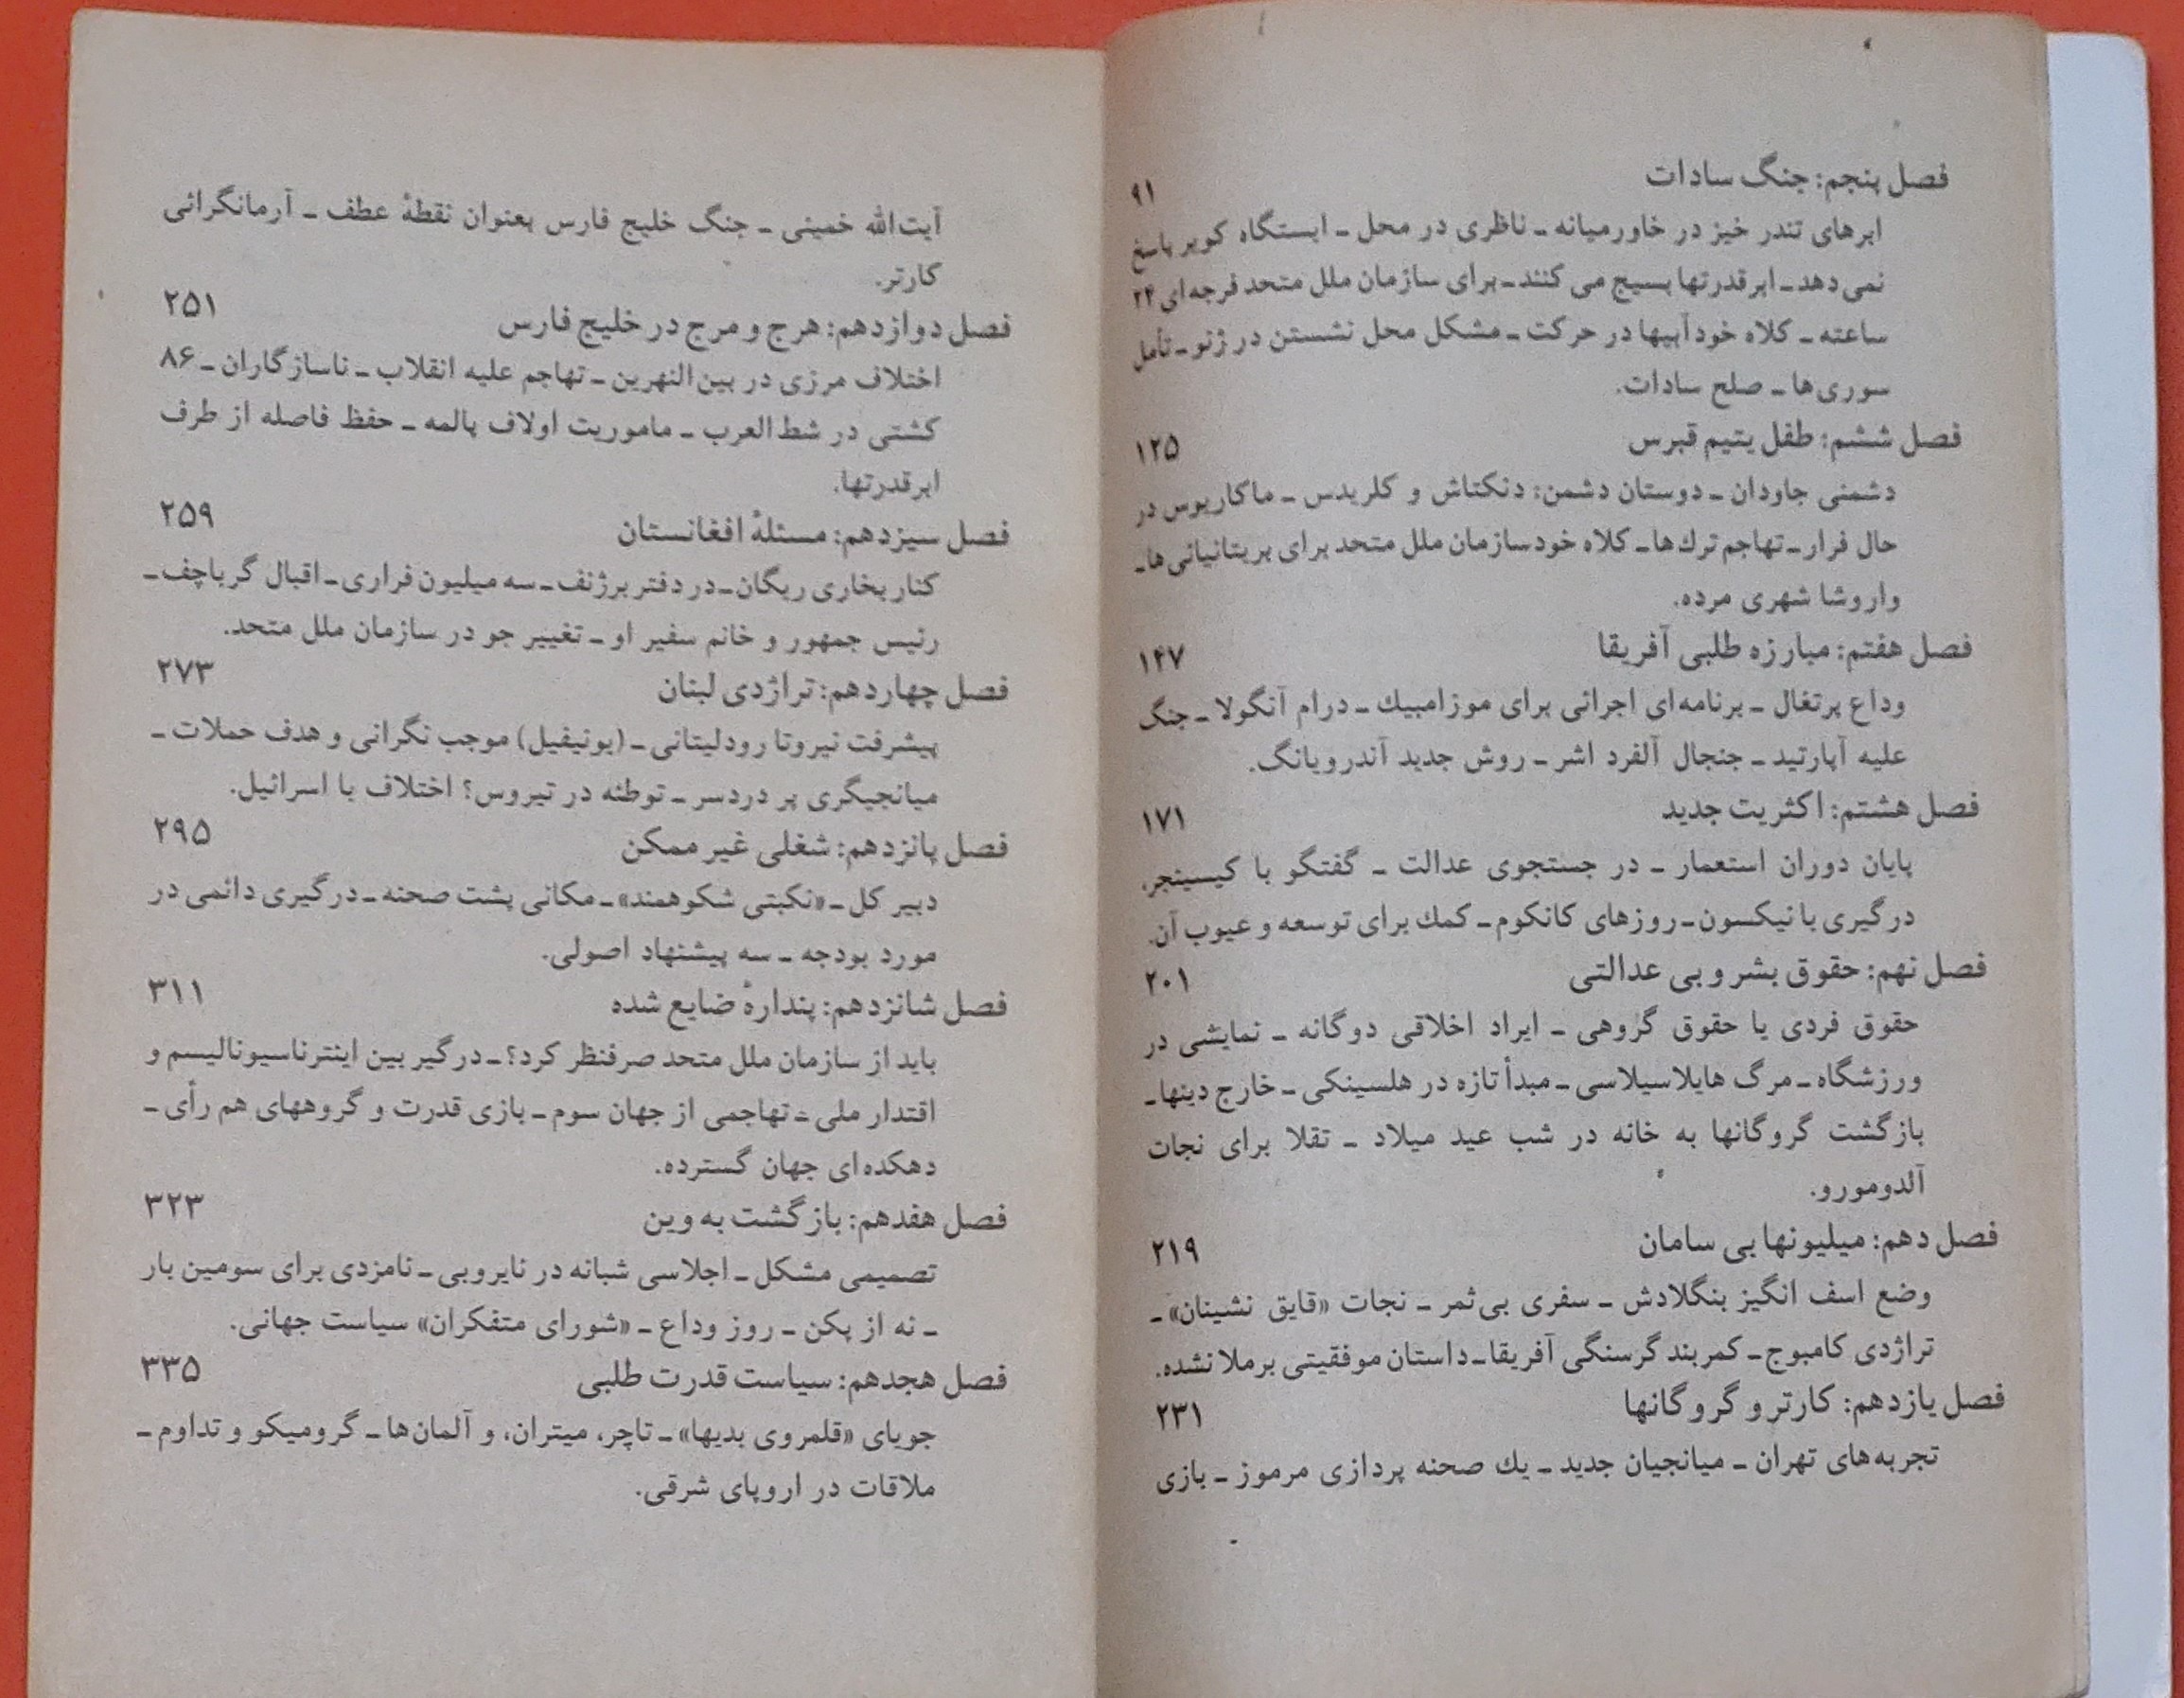 فصل پنجم: جنگ سادات ۹۱
ابرهای تندر خیز در خاورمیانه ـ ناظری در محل ـ ایستگاه کویر پاسخ
نمی‌دهد ـ ابرقدرتها بسیج می‌کنند ـ برای سازمان ملل متحد فرجه‌ای ۲۴
ساعته ـ کلاه خودآبیها در حرکت ـ مشکل محل نشستن در ژنو ـ تأمل
سوری‌ها ـ صلح سادات.
فصل ششم: طفل یتیم قبرس ۱۲۵
دشمنی جاودان ـ دوستان دشمن: دنکتاش و کلریدس ـ ماکاریوس در
حال فرار ـ تهاجم ترك‌ها ـ کلاه خودسازمان ملل متحد برای بریتانیائی‌ها ـ
واروشا شهری مرده.
فصل هفتم: مبارزه طلبی آفریقا ۱۴۷
وداع پرتغال ـ برنامه‌ای اجرائی برای موزامبیك ـ درام آنگولا ـ جنگ
علیه آپارتید ـ جنجال آلفرد اشر ـ روش جدید آندرویانگ.
فصل هشتم: اکثریت جدید ۱۷۱
پایان دوران استعمار ـ در جستجوی عدالت ـ گفتگو با کیسینجر،
درگیری با نیکسون ـ روزهای کانکوم ـ کمك برای توسعه و عیوب آن.
فصل نهم: حقوق بشر و بی عدالتی ۲۰۱
حقوق فردی یا حقوق گروهی ـ ایراد اخلاقی دوگانه ـ نمایشی در
ورزشگاه ـ مرگ هایلاسیلاسی ـ مبدأ تازه در هلسینکی ـ خارج دینها ـ
بازگشت گروگانها به خانه در شب عید میلاد ـ تقلا برای نجات
آلدومورو.
فصل دهم: میلیونها بی سامان ۲۱۹
وضع اسف انگیز بنگلادش ـ سفری بی‌ثمر ـ نجات «قایق نشینان» ـ
تراژدی کامبوج ـ کمربند گرسنگی آفریقا ـ داستان موفقیتی برملا نشده.
فصل یازدهم: کارتر و گروگانها ۲۳۱
تجربه‌های تهران ـ میانجیان جدید ـ یك صحنه پردازی مرموز ـ بازی
آیت‌الله خمینی ـ جنگ خلیج فارس بعنوان نقطهٔ عطف ـ آرمانگرائی
کارتر.
فصل دوازدهم: هرج و مرج در خلیج فارس ۲۵۱
اختلاف مرزی در بین‌النهرین ـ تهاجم علیه انقلاب ـ ناسازگاران ـ ۸۶
کشتی در شط‌العرب ـ ماموریت اولاف پالمه ـ حفظ فاصله از طرف
ابرقدرتها.
فصل سیزدهم: مسئلهٔ افغانستان ۲۵۹
کنار بخاری ریگان ـ در دفتر برژنف ـ سه میلیون فراری ـ اقبال گرباچف ـ
رئیس جمهور و خانم سفیر او ـ تغییر جو در سازمان ملل متحد.
فصل چهاردهم: تراژدی لبنان ۲۷۳
پیشرفت نیروتا رودلیتانی ـ (یونیفیل) موجب نگرانی و هدف حملات ـ
میانجیگری پر دردسر ـ توطئه در تیروس؟ اختلاف با اسرائیل.
فصل پانزدهم: شغلی غیر ممکن ۲۹۵
دبیر کل ـ «نکبتی شکوهمند» ـ مکانی پشت صحنه ـ درگیری دائمی در
مورد بودجه ـ سه پیشنهاد اصولی.
فصل شانزدهم: پندارهٔ ضایع شده ۳۱۱
باید از سازمان ملل متحد صرفنظر کرد؟ ـ درگیر بین اینترناسیونالیسم و
اقتدار ملی ـ تهاجمی از جهان سوم ـ بازی قدرت و گروههای هم رأی ـ
دهکده‌ای جهان گسترده.
فصل هفدهم: بازگشت به وین ۳۲۳
تصمیمی مشکل ـ اجلاسی شبانه در نایروبی ـ نامزدی برای سومین بار
ـ نه از پکن ـ روز وداع ـ «شورای متفکران» سیاست جهانی.
فصل هجدهم: سیاست قدرت طلبی ۳۳۵
جویای «قلمروی بدیها» ـ تاچر، میتران، و آلمان‌ها ـ گرومیکو و تداوم ـ
ملاقات در اروپای شرقی.